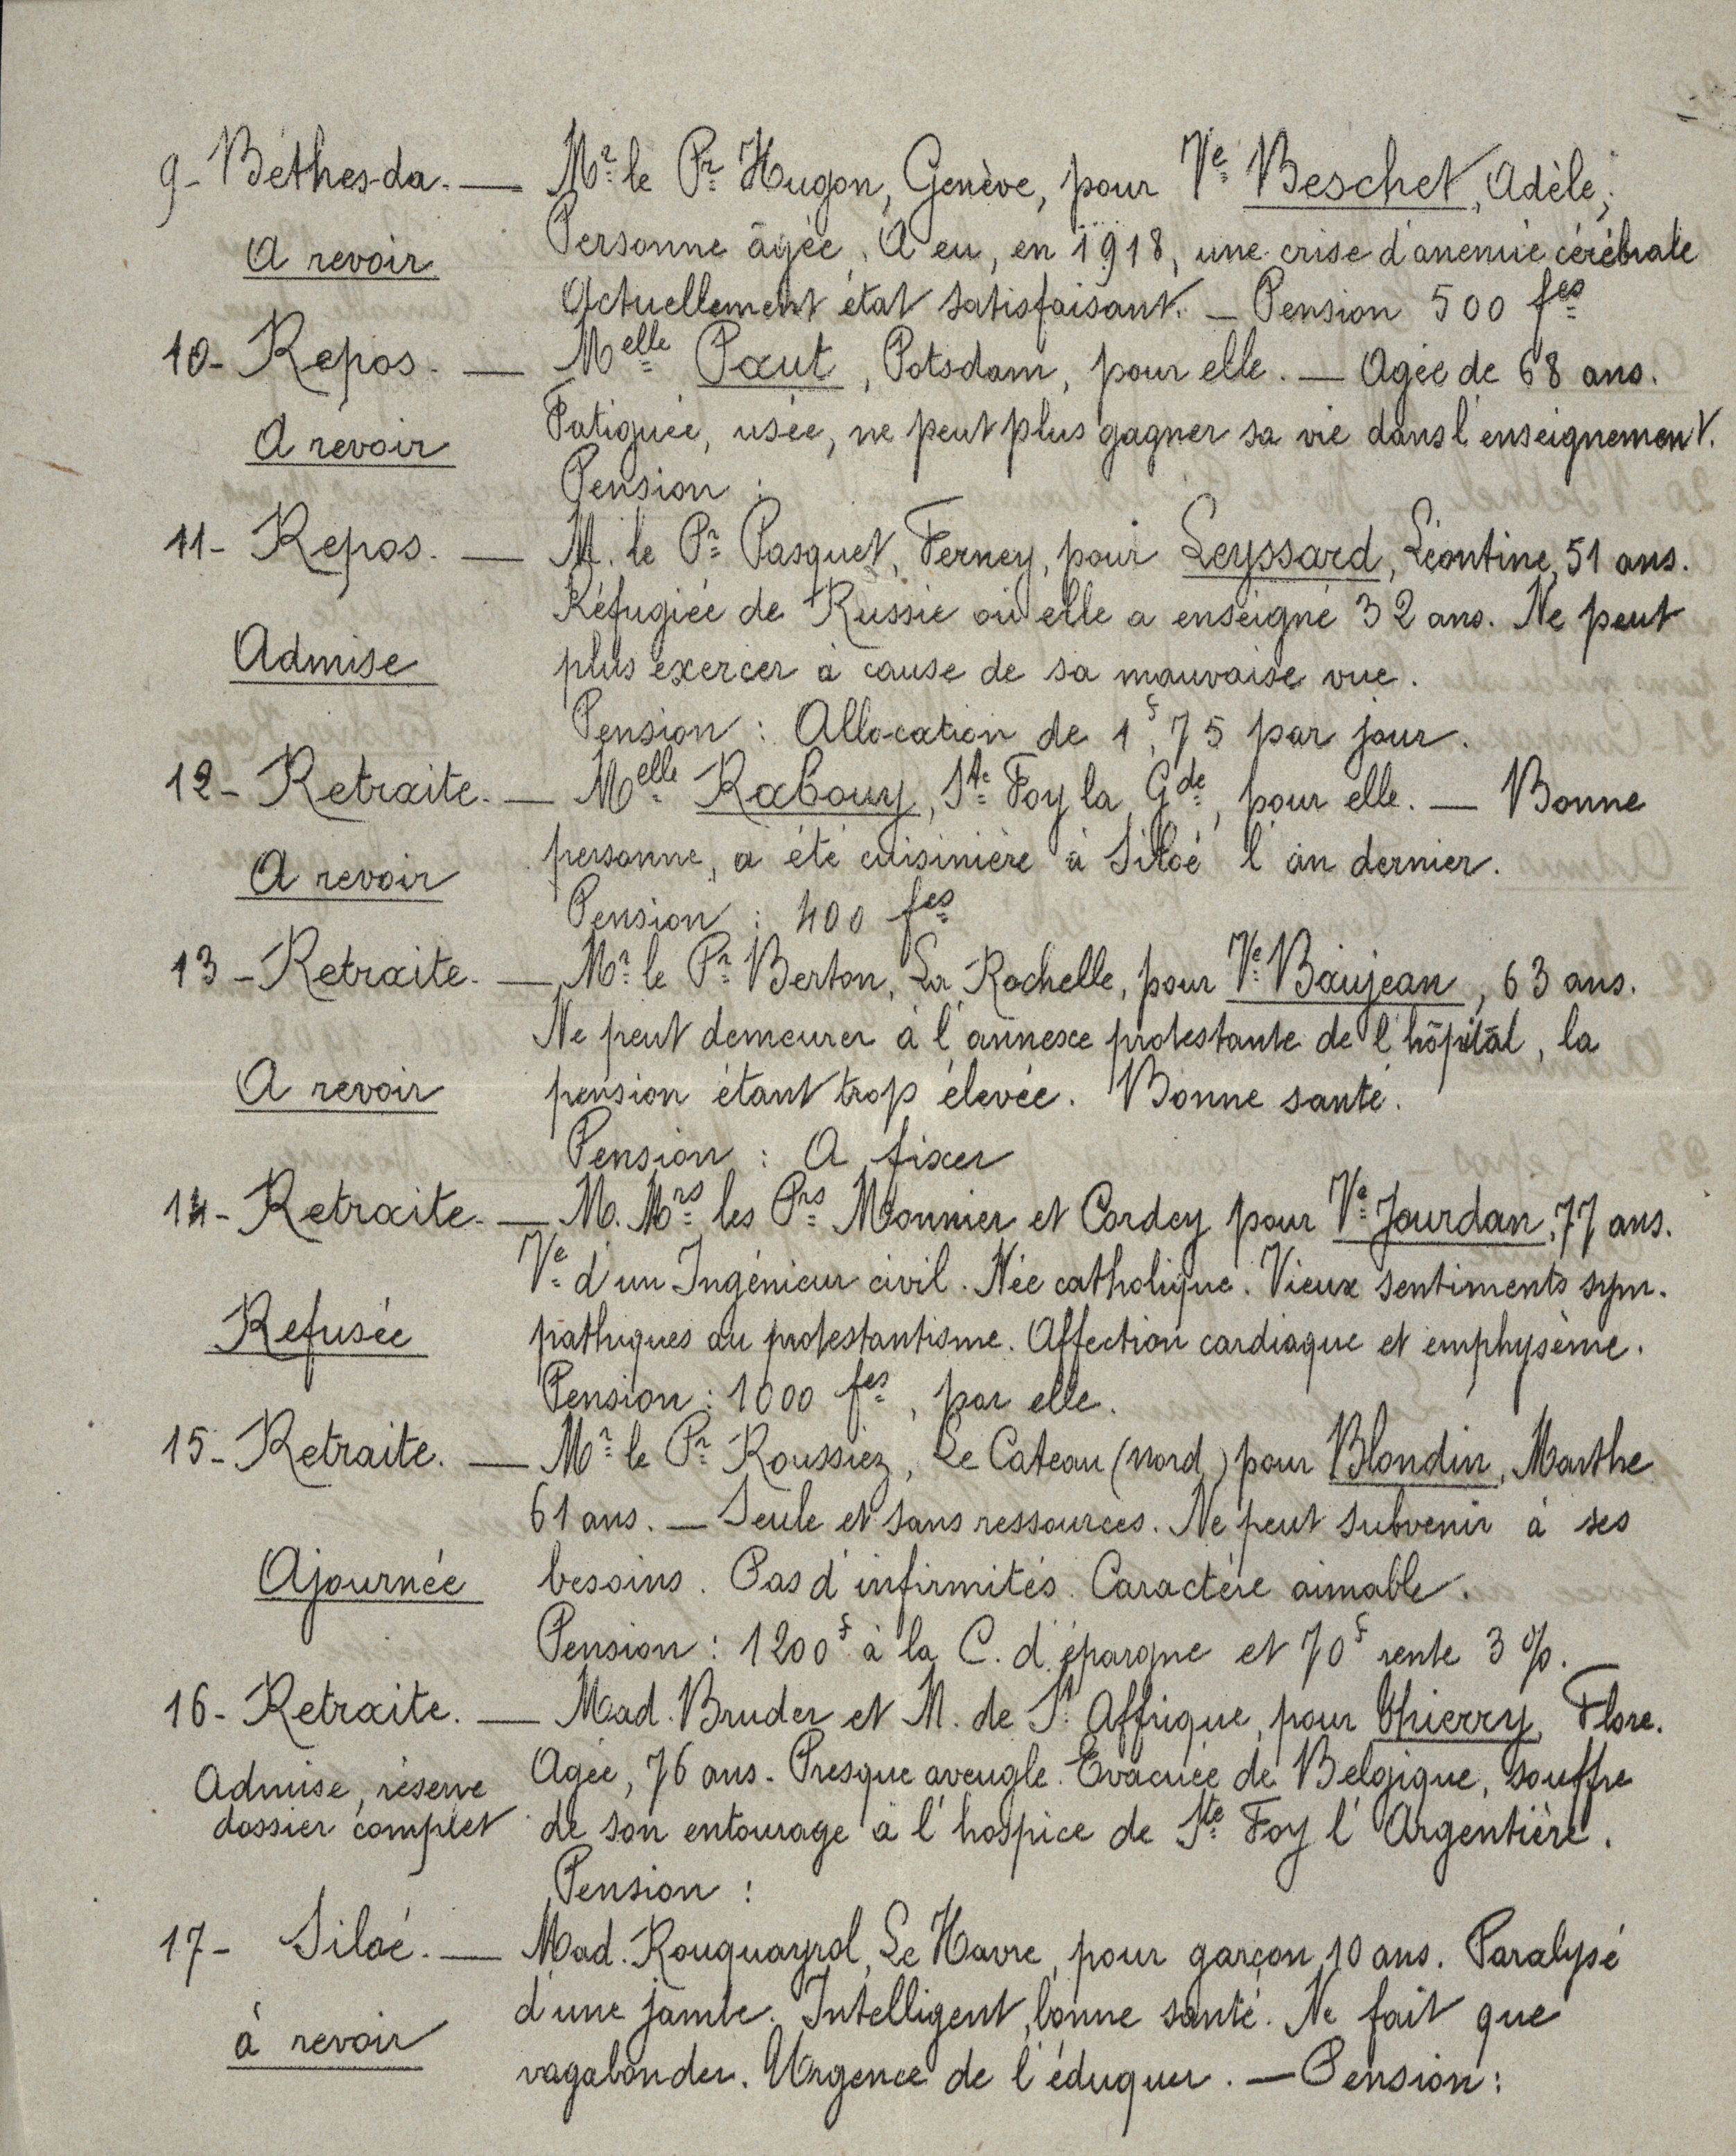 9- Béthesda. — Mr le Pr Hugon, Genève, pour Ve Beschet, Adèle,
Personne âgée. A eu, en 1918, une crise d'anemie cérébrale
A revoir
Actuellement état satisfaisant. — Pension 500 fcs
10- Repos. — Melle Paut, Potsdam, pour elle. — Agée de 68 ans.
Fatiguée, usée, ne peut plus gagner sa vie dans l'enseignement.
A revoir
Pension :
11- Repos. — M. le Pr Pasquet, Ferney, pour Leyssard, Léontine, 51 ans.
Réfugiée de Russie où elle a enseigné 32 ans. Ne peut
Admise
plus exercer à cause de sa mauvaise vue.
Pension : Allocation de 1f,75 par jour.
12- Retraite. — Melle Rabouy, Ste Foy la Gde, pour elle. — Bonne
personne, a été cuisinière à Siloé l'an dernier.
A revoir
Pension : 400 fcs
13- Retraite. — Mr le Pr Berton, La Rochelle, pour Ve Baujean, 63 ans.
Ne peut demeurer à l'annexe protestante de l'hôpital, la
A revoir
pension étant trop élevée. Bonne santé.
Pension : A fixer
14- Retraite. — M. Mrs les Prs Monnier et Cordey pour Ve Jourdan, 77 ans.
Ve d'un Ingénieur civil. Née catholique. Vieux sentiments sym-
Refusée
pathiques au protestantisme. Affection cardiaque et emphysème.
Pension : 1000 fcs, par elle.
15- Retraite. — Mr le Pr Roussiez, Le Cateau (Nord) pour Blondin, Marthe
61 ans. — Seule et sans ressources. Ne peut subvenir à ses
Ajournée
besoins. Pas d'infirmités. Caractère aimable.
Pension : 1200f à la C. d'épargne et 70f rente 3 %.
16- Retraite. — Mad. Bruder et M. de St Affrique, pour Thierry, Flore.
Agée, 76 ans. Presque aveugle. Evacuée de Belgique, souffre
Admise, réserve
dossier complet
de son entourage à l'hospice de Ste Foy l'Argentière.
Pension :
17- Siloé. — Mad. Rouquayrol, Le Havre, pour garçon 10 ans. Paralysé
d'une jambe. Intelligent, bonne santé. Ne fait que
à revoir
vagabonder. Urgence de l'éduquer. — Pension :